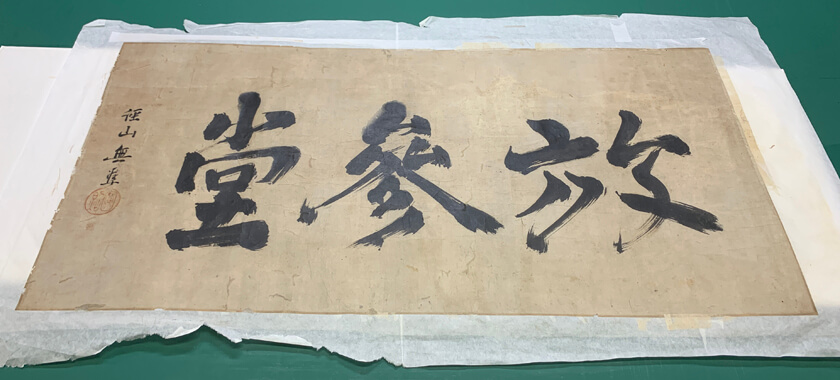 放參堂
徑山無準